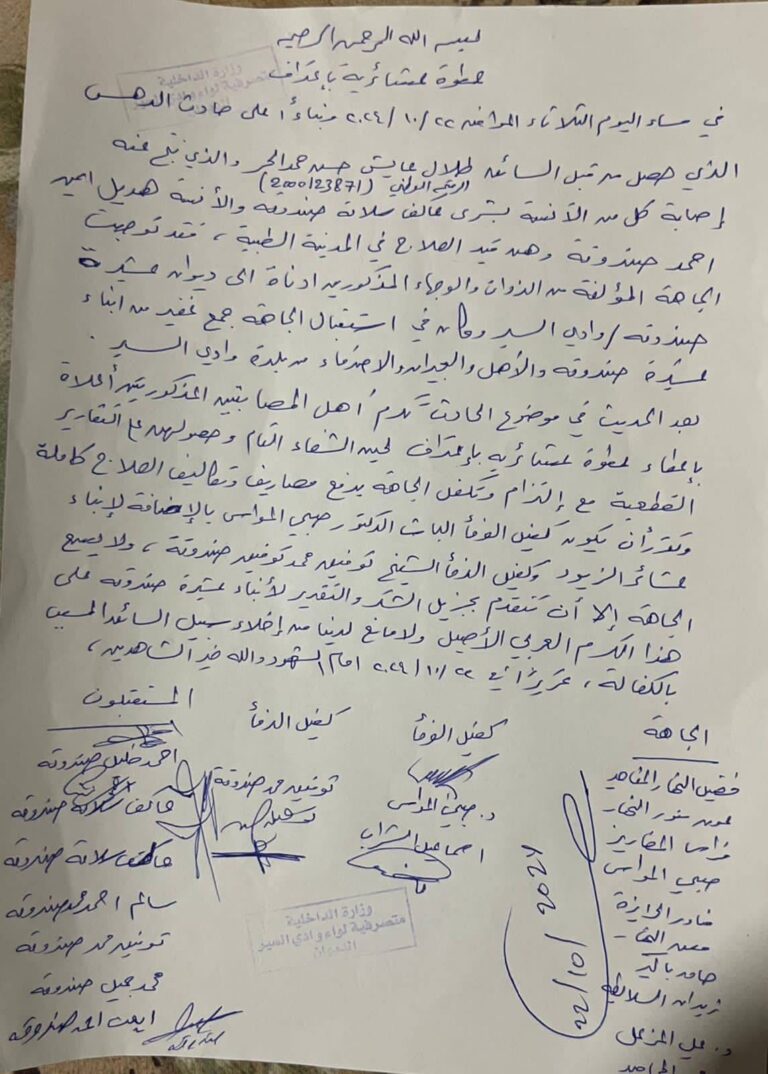 بسم الله الرحمن الرحيم
عطوة عشائرية بإعتراف
وزارة الداخلية
متصرفية لواء وادي السير
في مساء اليوم الثلاثاء الموافق ٢٢/١٠/٢٠٢٤ وبناءً على حادث الدهس
الذي حصل من قبل السائق طلال عايش حسن حمد الحر والذي نتج عنه
الرقم الوطني (2000123871)
إصابة كل من الآنسة بشرى عاكف سلامة صندوقة والآنسة هديل ايمن
احمد صندوقة وهن قيد العلاج في المدينة الطبية ، فقد توجهت
الجاهة المؤلفة من الذوات والوجهاء المذكورين ادناة الى ديوان عشيرة
صندوقة / وادي السير وكان في استقبال الجاهة جمع غفير من ابناء
عشيرة صندوقة والأهل والجيران والاصدقاء من بلدة وادي السير .
بعد الحديث في موضوع الحادث تكرم أهل المصابتين المذكورتين أعلاة
بإعطاء عطوة عشائرية بإعتراف لحين الشفاء التام وحصولهن على التقارير
القطعية مع إلتزام وتكفل الجاهة بدفع مصاريف وتكاليف العلاج كاملة
وتقرر أن يكون كفيل الوفا الباشا الدكتور صبحي المواس بالإضافة لإبناء
عشائر الزيود وكفيل الدفا الشيخ توفيق محمد توفيق صندوقة ، ولا يسع
الجاهة إلا أن تتقدم بجزيل الشكر والتقدير لأبناء عشيرة صندوقة على
هذا الكرم العربي الأصيل ولا مانع لدينا من إخلاء سبيل السائق المسبب
بالكفالة ، تحريراً في ٢٢/١٠/٢٠٢٤ امام الشهود والله خير الشاهدين ،
الجاهة
كفيل الوفا
كفيل الدفا
المستقبلون
عون النجار
صبحي المواس
زيدان السلايطة
د. صبحي المواس
اسماعيل الشراب
توفيق محمد صندوقة
احمد خليل صندوقة
عاكف سلامة صندوقة
عاكف سلامة صندوقة
سالم احمد محمد صندوقة
توفيق محمد صندوقة
محمد جميل صندوقة
ايمن احمد صندوقة
22/10/2024
وزارة الداخلية
متصرفية لواء وادي السير
الديوان